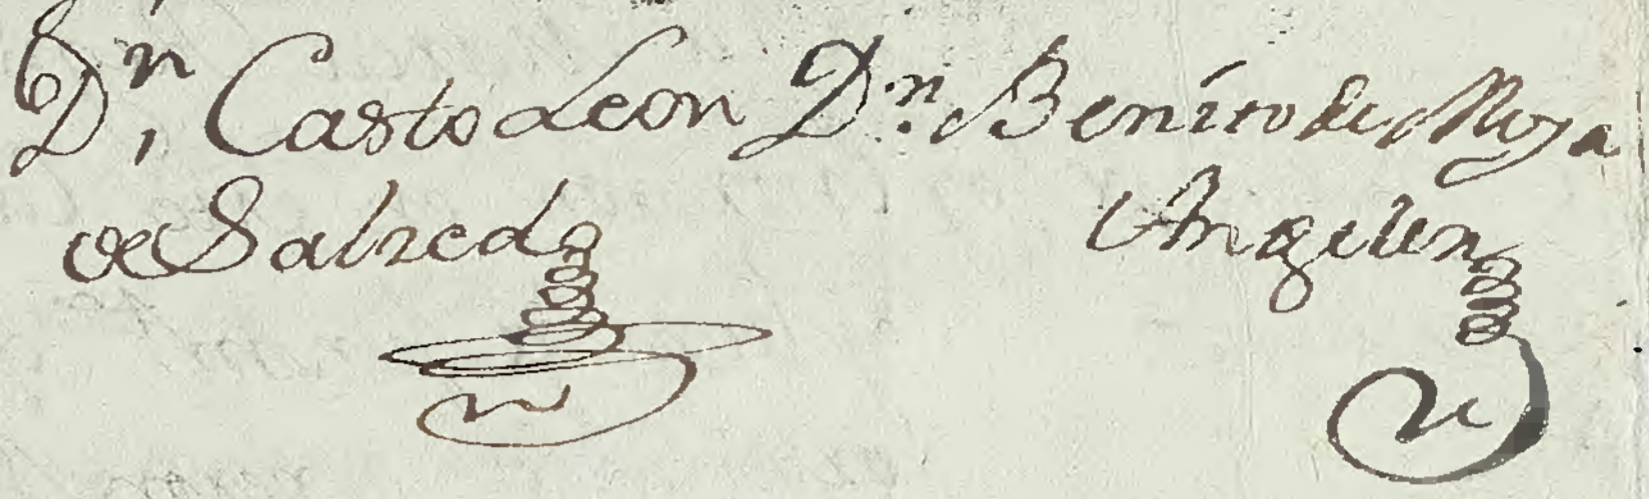 Dn, Casto Leon
de Salzedo
Dn. Benito de Moya
Angelen